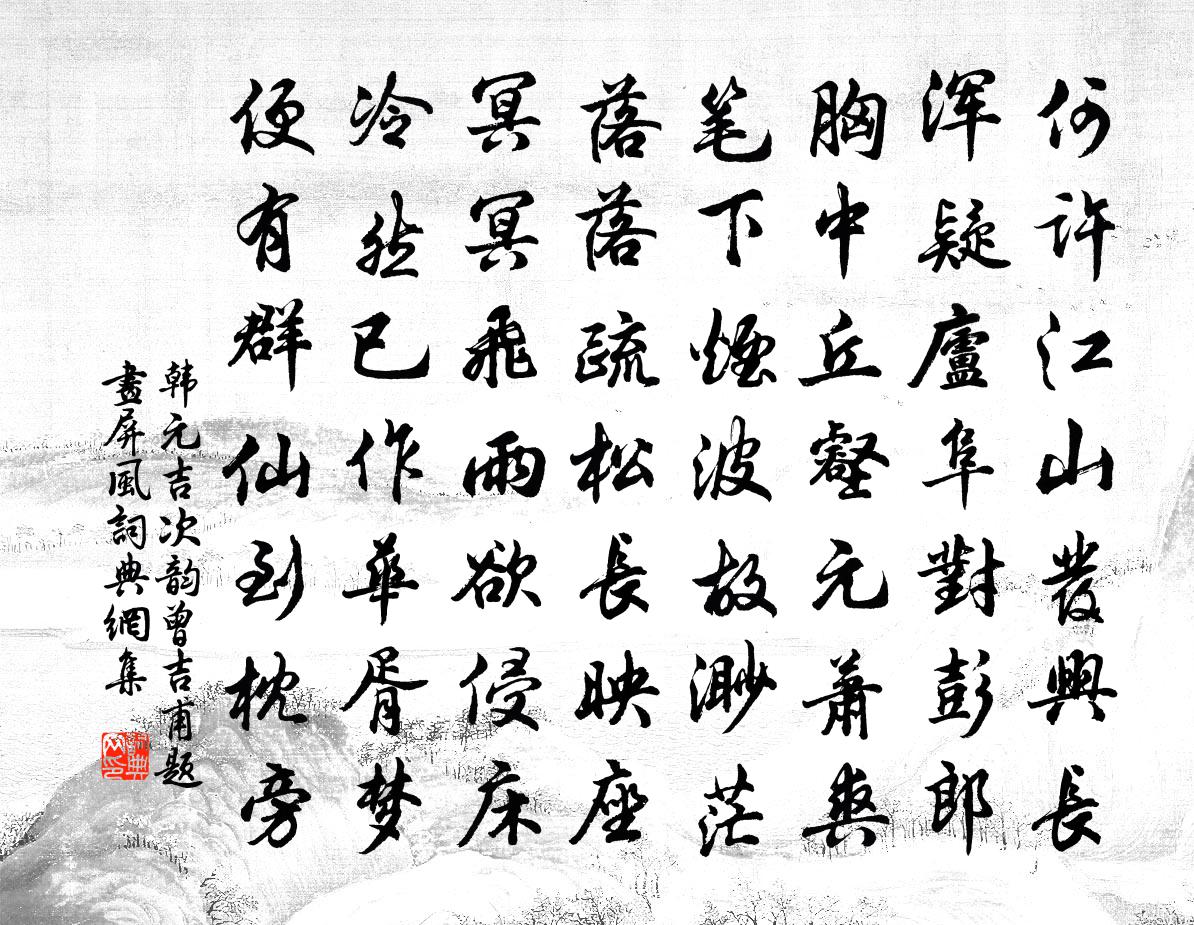 何许江山發興長
浑疑廬阜對彭郎
胸中丘壑元萧爽
笔下煙波故渺茫
落落疏松長映座
冥冥飛雨欲侵床
冷然已作華胥梦
便有群仙到枕旁
韩元吉次韵曾吉甫題
畫屏風詞典網集